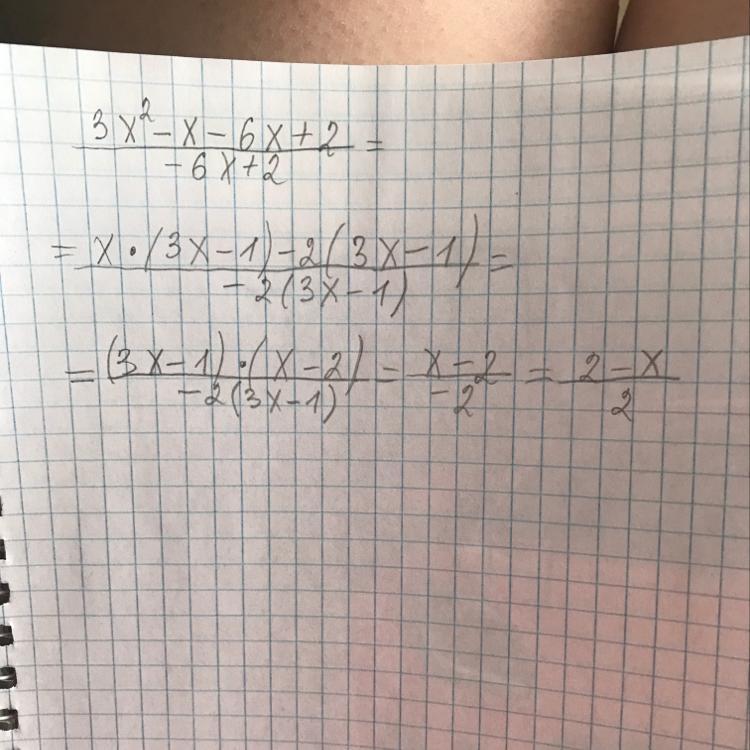 3x² - x - 6x + 2 =
-6x + 2
= x · (3x - 1) - 2(3x - 1) =
-2(3x - 1)
= (3x - 1) · (x - 2) = x - 2 = 2 - x
-2(3x - 1) -2 2